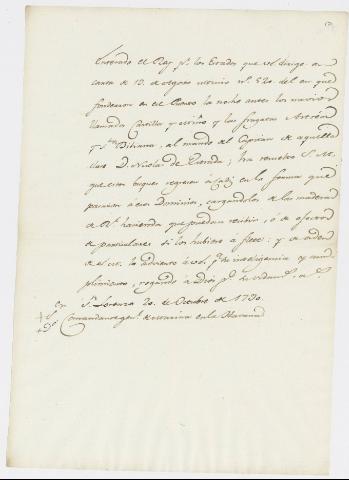 Enterado el Rey pr. los Estados que vd. dirige en
carta de 12. de Agosto ultimo nº. 520. del en que
fondearon en el Puerto la noche antes los navios
llamado Castilla y
y Sta. Bibiana, al mando del Capitan de aquella
clase D. Nicolas de Estrada; ha resuelto S. M.
que estos buques regresen á Cadiz en la forma que
pasaron á esos Dominios, cargandolos de las maderas
de Rl. hacienda que puedan recibir, ó de efectos
de particulares si los hubiere á flete: y de orden
de S. M. lo advierto á vd. pa. su inteligencia y cum
plimiento, rogando á Dios
Sn. Lorenzo 20. de Octubre de 1790.
Comandante genl. de marina en la Havana